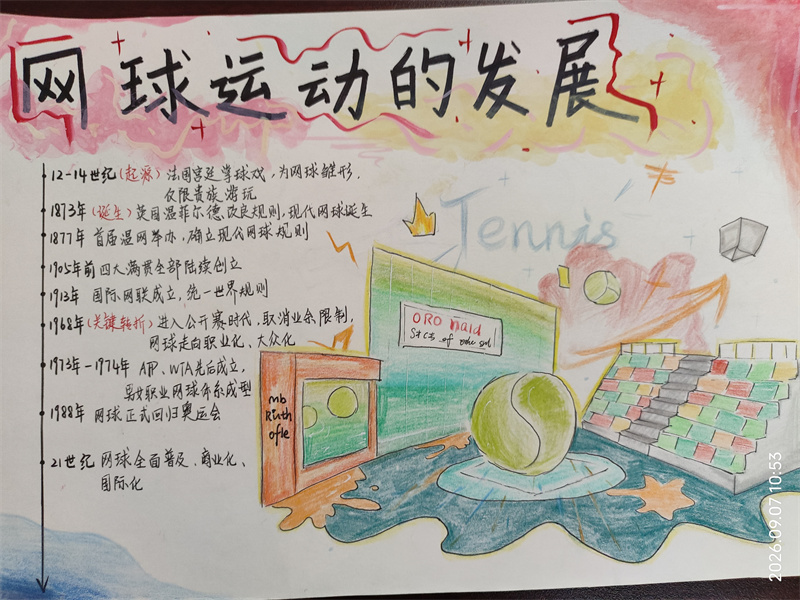 网球运动的发展
12-14世纪(起源) 法国宫廷掌球戏,为网球雏形.
仅限贵族游玩
1873年(诞生) 英国温菲尔德改良规则,现代网球诞生
1877年 首届温网举办,确立现代网球规则
1905年前 四大满贯全部陆续创立
1913年 国际网联成立,统一世界规则
1968年(关键转折) 进入公开赛时代.取消业余限制,
网球走向职业化、大众化
1973年-1974年 ATP、WTA先后成立,
职业网球体系成型
1988年 网球正式回归奥运会
21世纪 网球全面普及.商业化、
国际化
Tennis
ORO nald
of
mb
Ruth
ofle
2026.09.07 10:53